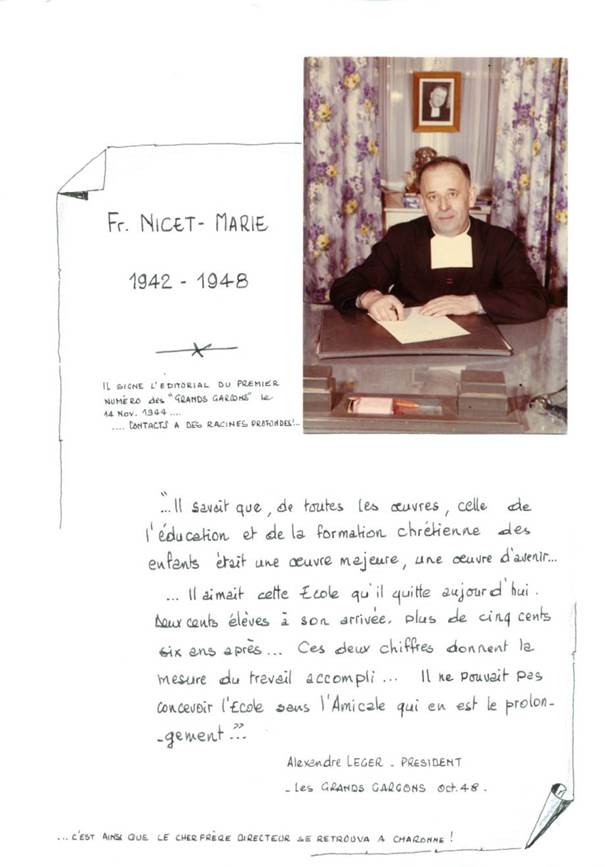 Fr. NICET-MARIE
1942 - 1948
IL SIGNE L'EDITORIAL DU PREMIER
NUMÉRO des "GRANDS GARÇONS" le
14 Nov. 1944 ....
.... CONTACTS A DES RACINES PROFONDES!..
"...Il savait que, de toutes les œuvres, celle de
l'éducation et de la formation chrétienne des
enfants était une œuvre majeure, une œuvre d'avenir...
... Il aimait cette Ecole qu'il quitte aujourd'hui.
Deux cents élèves à son arrivée. plus de cinq cents
six ans après... Ces deux chiffres donnent la
mesure du travail accompli... Il ne pouvait pas
concevoir l'Ecole sans l'Amicale qui en est le prolon-
-gement"...
Alexandre LEGER - PRESIDENT
- Les GRANDS GARCONS Oct. 48 -
... C'EST AINSI QUE LE CHER FRÈRE DIRECTEUR SE RETROUVA A CHARONNE !